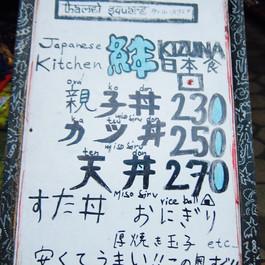 thamel square
Japanese Kitchen 絆 KIZUNA 日本食
oya ko don
親子丼 230
ka tsu don miso siru
カツ丼 250
ten don miso siru
天丼 270
miso siru rice ball
すた丼 おにぎり
厚焼き玉子 etc...
安くてうまい!!この